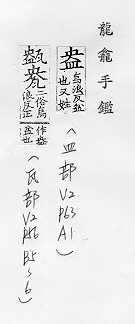 龍龕手鑑
盎 烏浪反盆也又姓
(皿部 V2 P63 A1)
二俗烏浪反正作盎盆也
(瓦部 V2 B5~6)